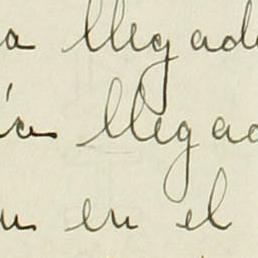 a llegad
ía llegad
en el